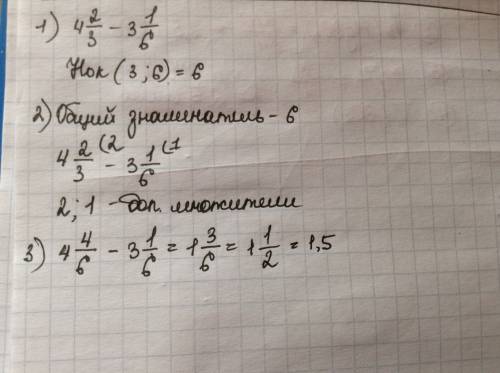 1) 4 2/3 - 3 1/6
Нок (3;6) = 6
2) Общий знаменатель - 6
4 2/3 (2 - 3 1/6 (1
2; 1 - доп. множители
3) 4 4/6 - 3 1/6 = 1 3/6 = 1 1/2 = 1,5